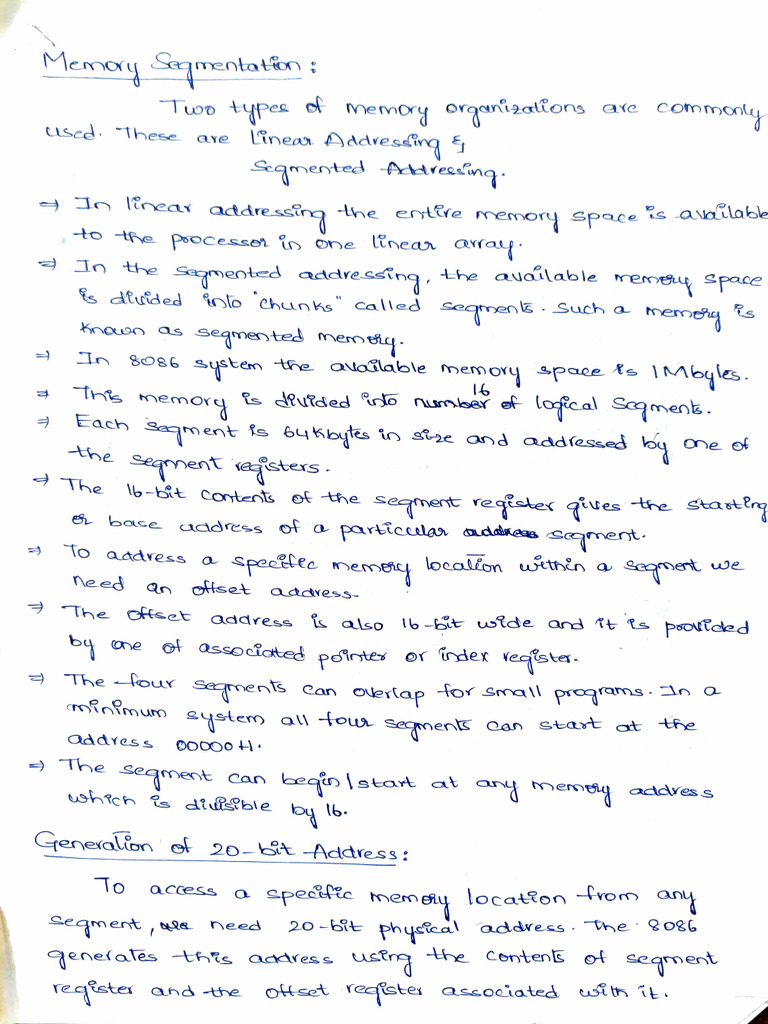 Memory Segmentation :
Two types of memory organizations are commonly
used. These are Linear Addressing &
Segmented Addressing.
⇒ In linear addressing the entire memory space is available
to the processor in one linear array.
⇒ In the segmented addressing, the available memory space
is divided into "chunks" called segments. Such a memory is
known as segmented memory.
⇒ In 8086 system the available memory space is 1Mbytes.
⇒ This memory is divided into number 16 of logical segments.
⇒ Each segment is 64Kbytes in size and addressed by one of
the segment registers.
⇒ The 16-bit contents of the segment register gives the starting
or base address of a particular address segment.
⇒ To address a specific memory location within a segment we
need an offset address.
⇒ The offset address is also 16-bit wide and it is provided
by one of associated pointer or index register.
⇒ The four segments can overlap for small programs. In a
minimum system all four segments can start at the
address 00000H.
⇒ The segment can begin/start at any memory address
which is divisible by 16.
Generation of 20-bit Address :
To access a specific memory location from any
segment, we need 20-bit physical address. The 8086
generates this address using the contents of segment
register and the offset register associated with it.